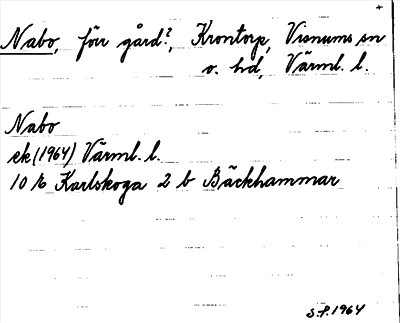 +
Nabo, förr gård?, Krontorp, Visnums sn
o. hd, Värml. l.
Nabo
ek (1964) Värml. l.
Karlskoga 2 b Bäckhammar
S.P. 1964